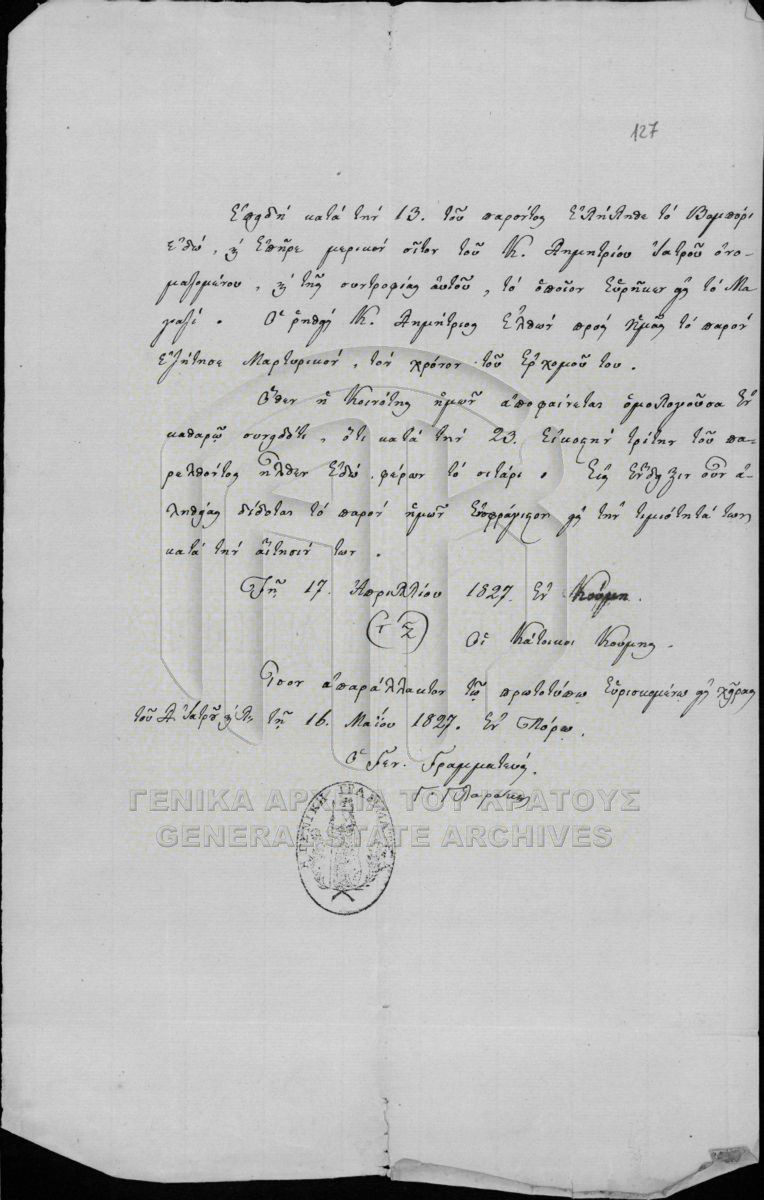 127
Ἐπειδὴ κατὰ τὴν 13. τοῦ παρόντος ἐξήχθη τὸ
ἐδῶ, καὶ ἐπῆρε μερικὸν σῖτον τοῦ Κ. Δημητρίου Ἰατροῦ ὀνο-
μαζομένου, καὶ τῆς συντροφίας αὐτοῦ, τὸ ὁποῖον εὑρῆκεν εἰς τὸ Μα-
γαζί. Ὁ ῥηθεὶς Κ. Δημήτριος ἐλθὼν πρὸς ἡμᾶς τὸ παρὸν
ἐζήτησε Μαρτυρικόν, τὸν χρόνον τοῦ ἐρχομοῦ του.
Ὅθεν ἡ Κοινότης ἡμῶν ἀποφαίνεται ὁμολογοῦσα ἐν
καθαρῷ συνειδότι, ὅτι κατὰ τὴν 23. εἰκοστὴν τρίτην τοῦ πα-
ρελθόντος ἦλθεν ἐδῶ φέρων τὸ σιτάρι. Εἰς ἔνδειξιν οὖν ἀ-
ληθείας δίδοται τὸ παρὸν ἡμῶν ἐνσφράγιστον εἰς τὴν τιμιότητά των
κατὰ τὴν αἴτησίν των.
Τῇ 17. Ἀπριλλίου 1827. ἐν Κούμῃ.
(Τ Σ)
Οἱ Κάτοικοι Κούμης.
Ἴσον ἀπαράλλακτον τῷ πρωτοτύπῳ εὑρισκομένῳ εἰς χεῖρας
τοῦ Δ. Ἰατροῦ τῇ 16. Μαΐου 1827. ἐν Πόρῳ.
Ὁ Γεν. Γραμματεύς.
Γ Γλαράκης
ΓΕΝΙΚΑ ΑΡΧΕΙΑ ΤΟΥ ΚΡΑΤΟΥΣ
GENERAL STATE ARCHIVES